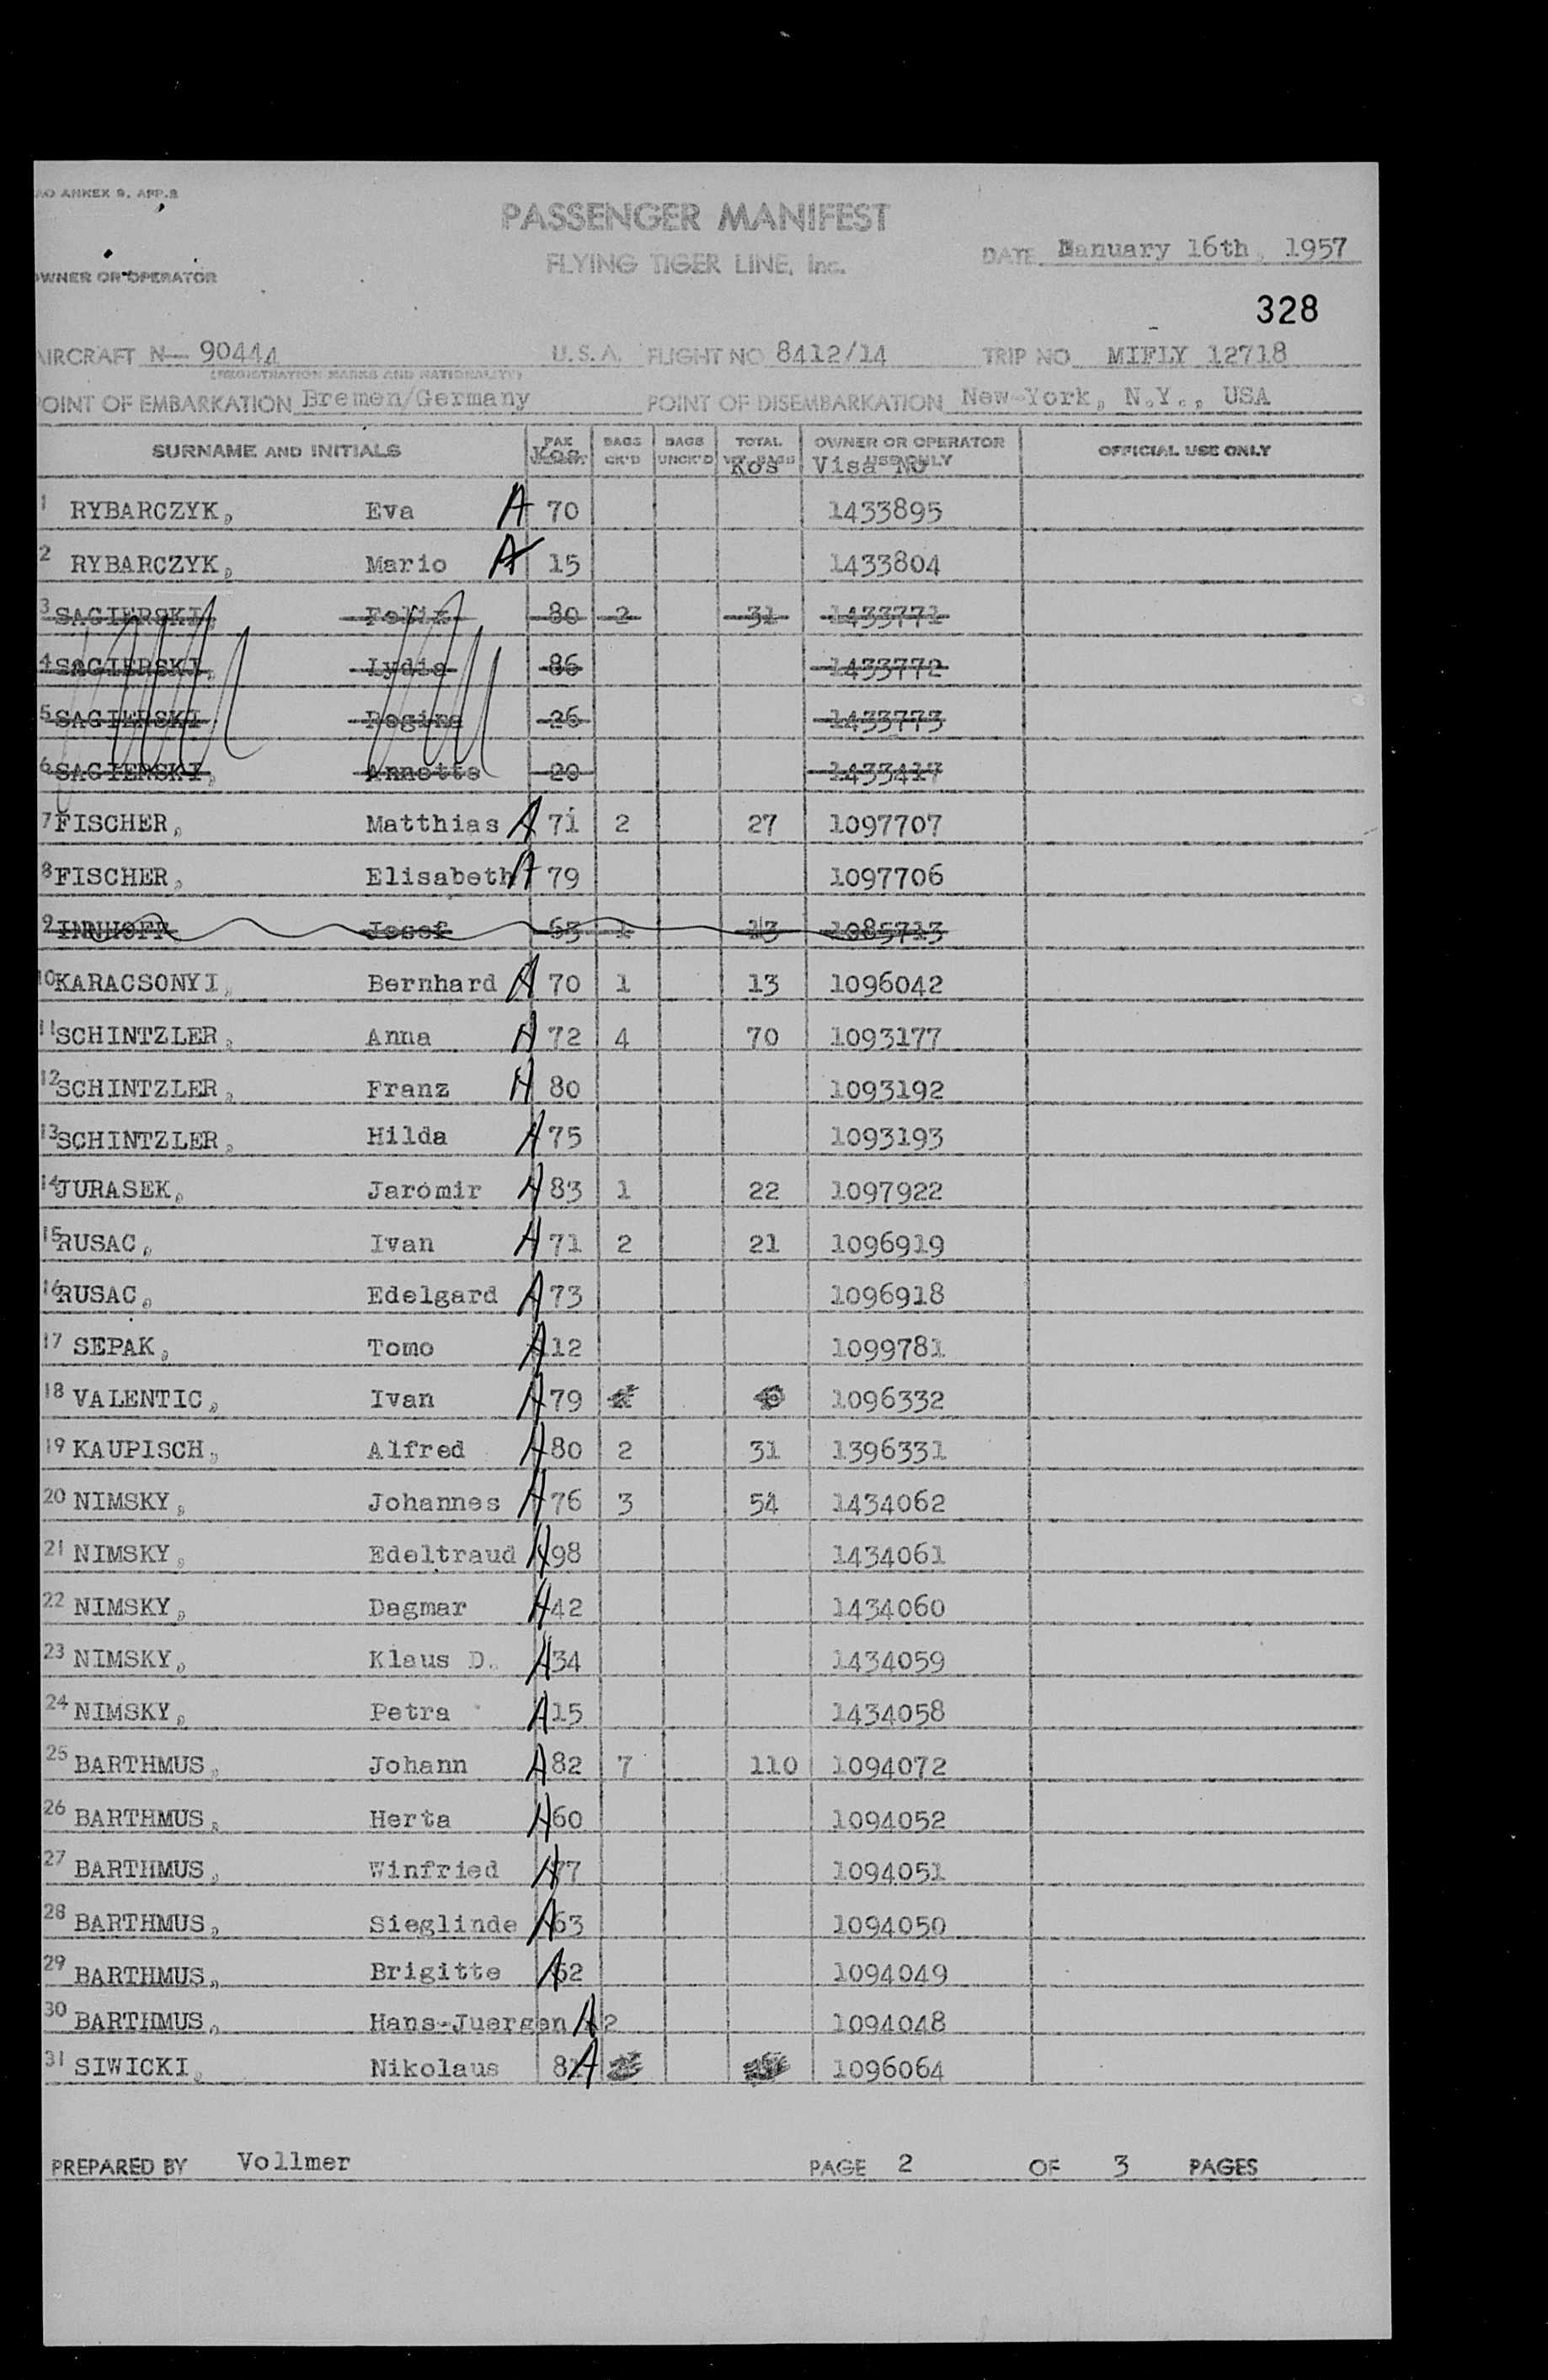 AO ANNEX 9, APP.2
PASSENGER MANIFEST
FLYING TIGER LINE, Inc.
DATE January 16th, 1957
OWNER OR OPERATOR
328
AIRCRAFT N- 90444 U.S.A. FLIGHT NO 8412/14 TRIP NO MIFLY 12718
(REGISTRATION MARKS AND NATIONALITY)
POINT OF EMBARKATION Bremen/Germany POINT OF DISEMBARKATION New-York, N.Y., USA
SURNAME AND INITIALS PAX Kos BAGS CK'D BAGS UNCK'D TOTAL Kos OWNER OR OPERATOR USE ONLY Visa No OFFICIAL USE ONLY
1 RYBARCZYK, Eva A 70 1433895
2 RYBARCZYK, Mario A 15 1433804
3 SAGIERSKI, Felix 80 2 31 1433771
4 SAGIERSKI, Lydia 86 1433772
5 SAGIERSKI Regina 26 1433773
6 SAGIERSKI, Annette 20 1433417
7 FISCHER, Matthias A 71 2 27 1097707
8 FISCHER, Elisabeth A 79 1097706
9 INNHOFF Josef 63 1 13 1085713
10 KARACSONYI, Bernhard A 70 1 13 1096042
11 SCHINTZLER, Anna A 72 4 70 1093177
12 SCHINTZLER, Franz A 80 1093192
13 SCHINTZLER, Hilda A 75 1093193
14 JURASEK, Jaromir A 83 1 22 1097922
15 RUSAC, Ivan A 71 2 21 1096919
16 RUSAC, Edelgard A 73 1096918
17 SEPAK, Tomo A 112 1099781
18 VALENTIC, Ivan A 79 1096332
19 KAUPISCH, Alfred A 80 2 31 1396331
20 NIMSKY, Johannes A 76 3 54 1434062
21 NIMSKY, Edeltraud A 98 1434061
22 NIMSKY, Dagmar A 42 1434060
23 NIMSKY, Klaus D. A 34 1434059
24 NIMSKY, Petra A 15 1434058
25 BARTHMUS, Johann A 82 7 110 1094072
26 BARTHMUS, Herta A 60 1094052
27 BARTHMUS, Winfried A 77 1094051
28 BARTHMUS, Sieglinde A 63 1094050
29 BARTHMUS, Brigitte A 62 1094049
30 BARTHMUS, Hans-Juergen A 2 1094048
31 SIWICKI, Nikolaus 81 A 1096064
PREPARED BY Vollmer PAGE 2 OF 3 PAGES